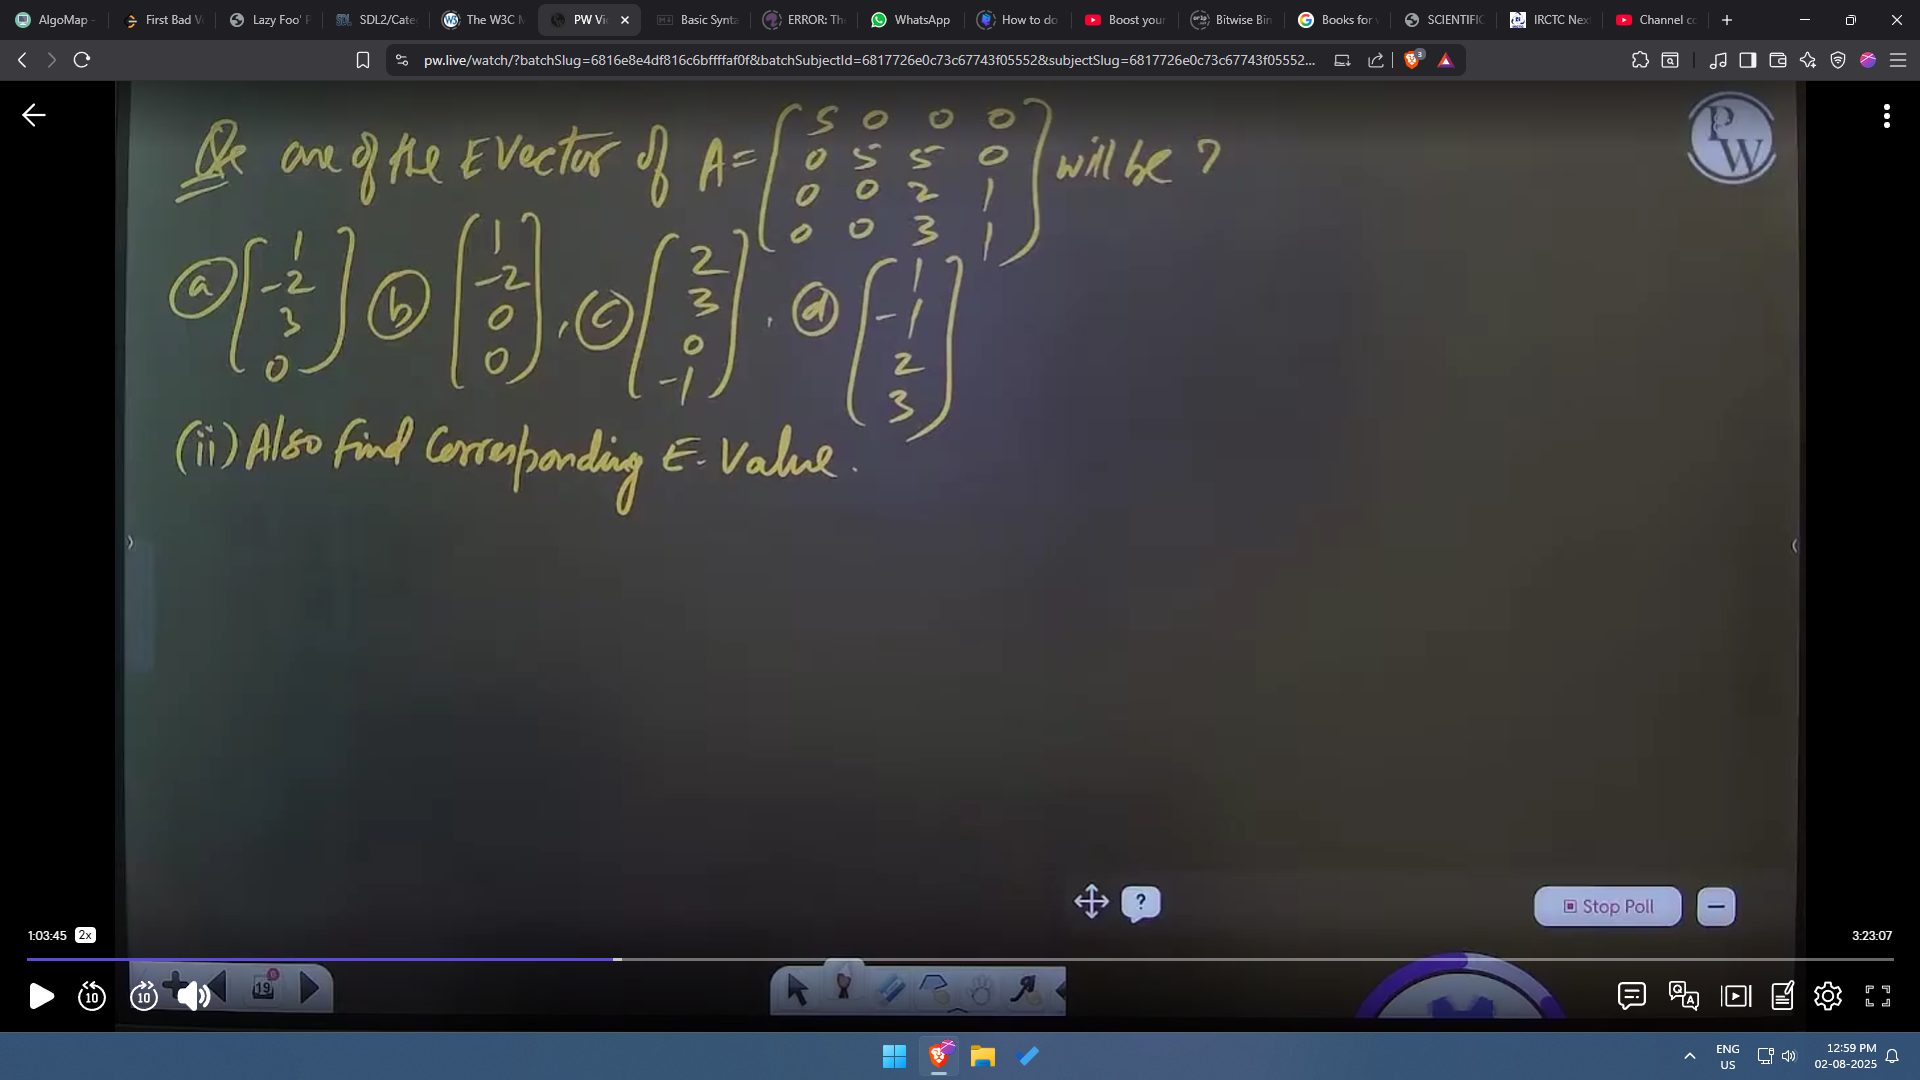 AlgoMap -
First Bad V
Lazy Foo' P
SDL2/Cate
The W3C M
PW Vi
Basic Synta
ERROR: Th
WhatsApp
How to do
Boost your
Bitwise Bin
Books for
SCIENTIFIC
IRCTC Nex
Channel co
pw.live/watch/?batchSlug=6816e8e4df816c6bffffaf0f&batchSubjectId=6817726e0c73c67743f05552&subjectSlug=6817726e0c73c67743f05552...
3
PW
Q one of the E Vector of A = [5 0 0 0
0 5 5 0
0 0 2 1
0 0 3 1] will be ?
(a) [1
-2
3
0]
(b) [1
-2
0
0],
(c) [2
3
0
-1],
(d) [1
-1
2
3]
(ii) Also find Corresponding E-Value.
?
Stop Poll
1:03:45 2x
3:23:07
10
10
19
ENG
US
12:59 PM
02-08-2025